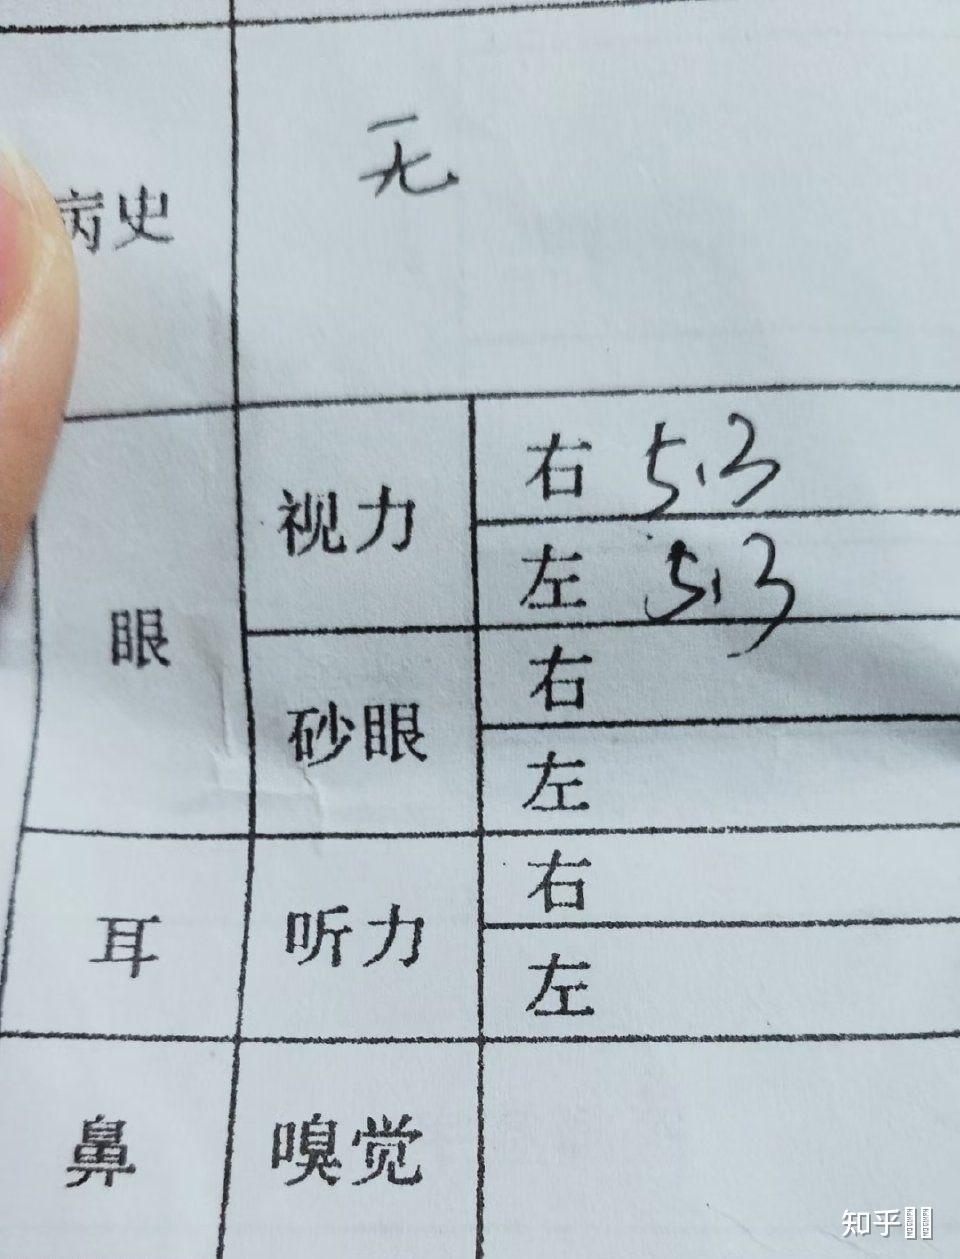 病史 无
眼 视力 右 5.3
左 5.3
砂眼 右
左
耳 听力 右
左
鼻 嗅觉
知乎